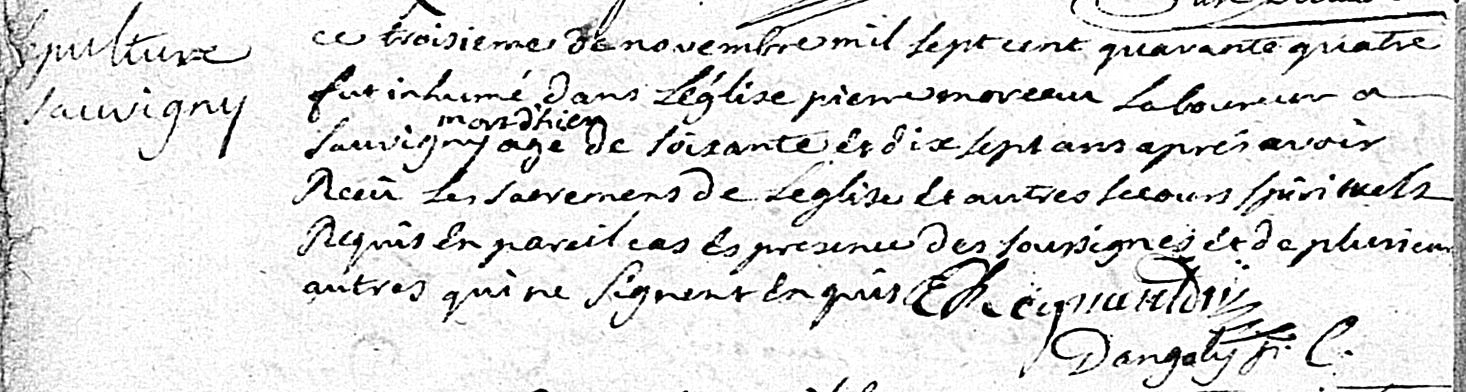 Sepulture
Sauvigny
ce troisieme de novembre mil sept cent quarante quatre
fut inhumé dans L'église pierre moreau Laboureur a
mort d'hier
Sauvigny agé de soixante et dix sept ans aprés avoir
Receü Les sacremens de Leglise et autres secours spirituels
Requis en pareil cas es presence des soussignés et de plusieurs
autres qui ne signent enquis
Dangoly p. C.